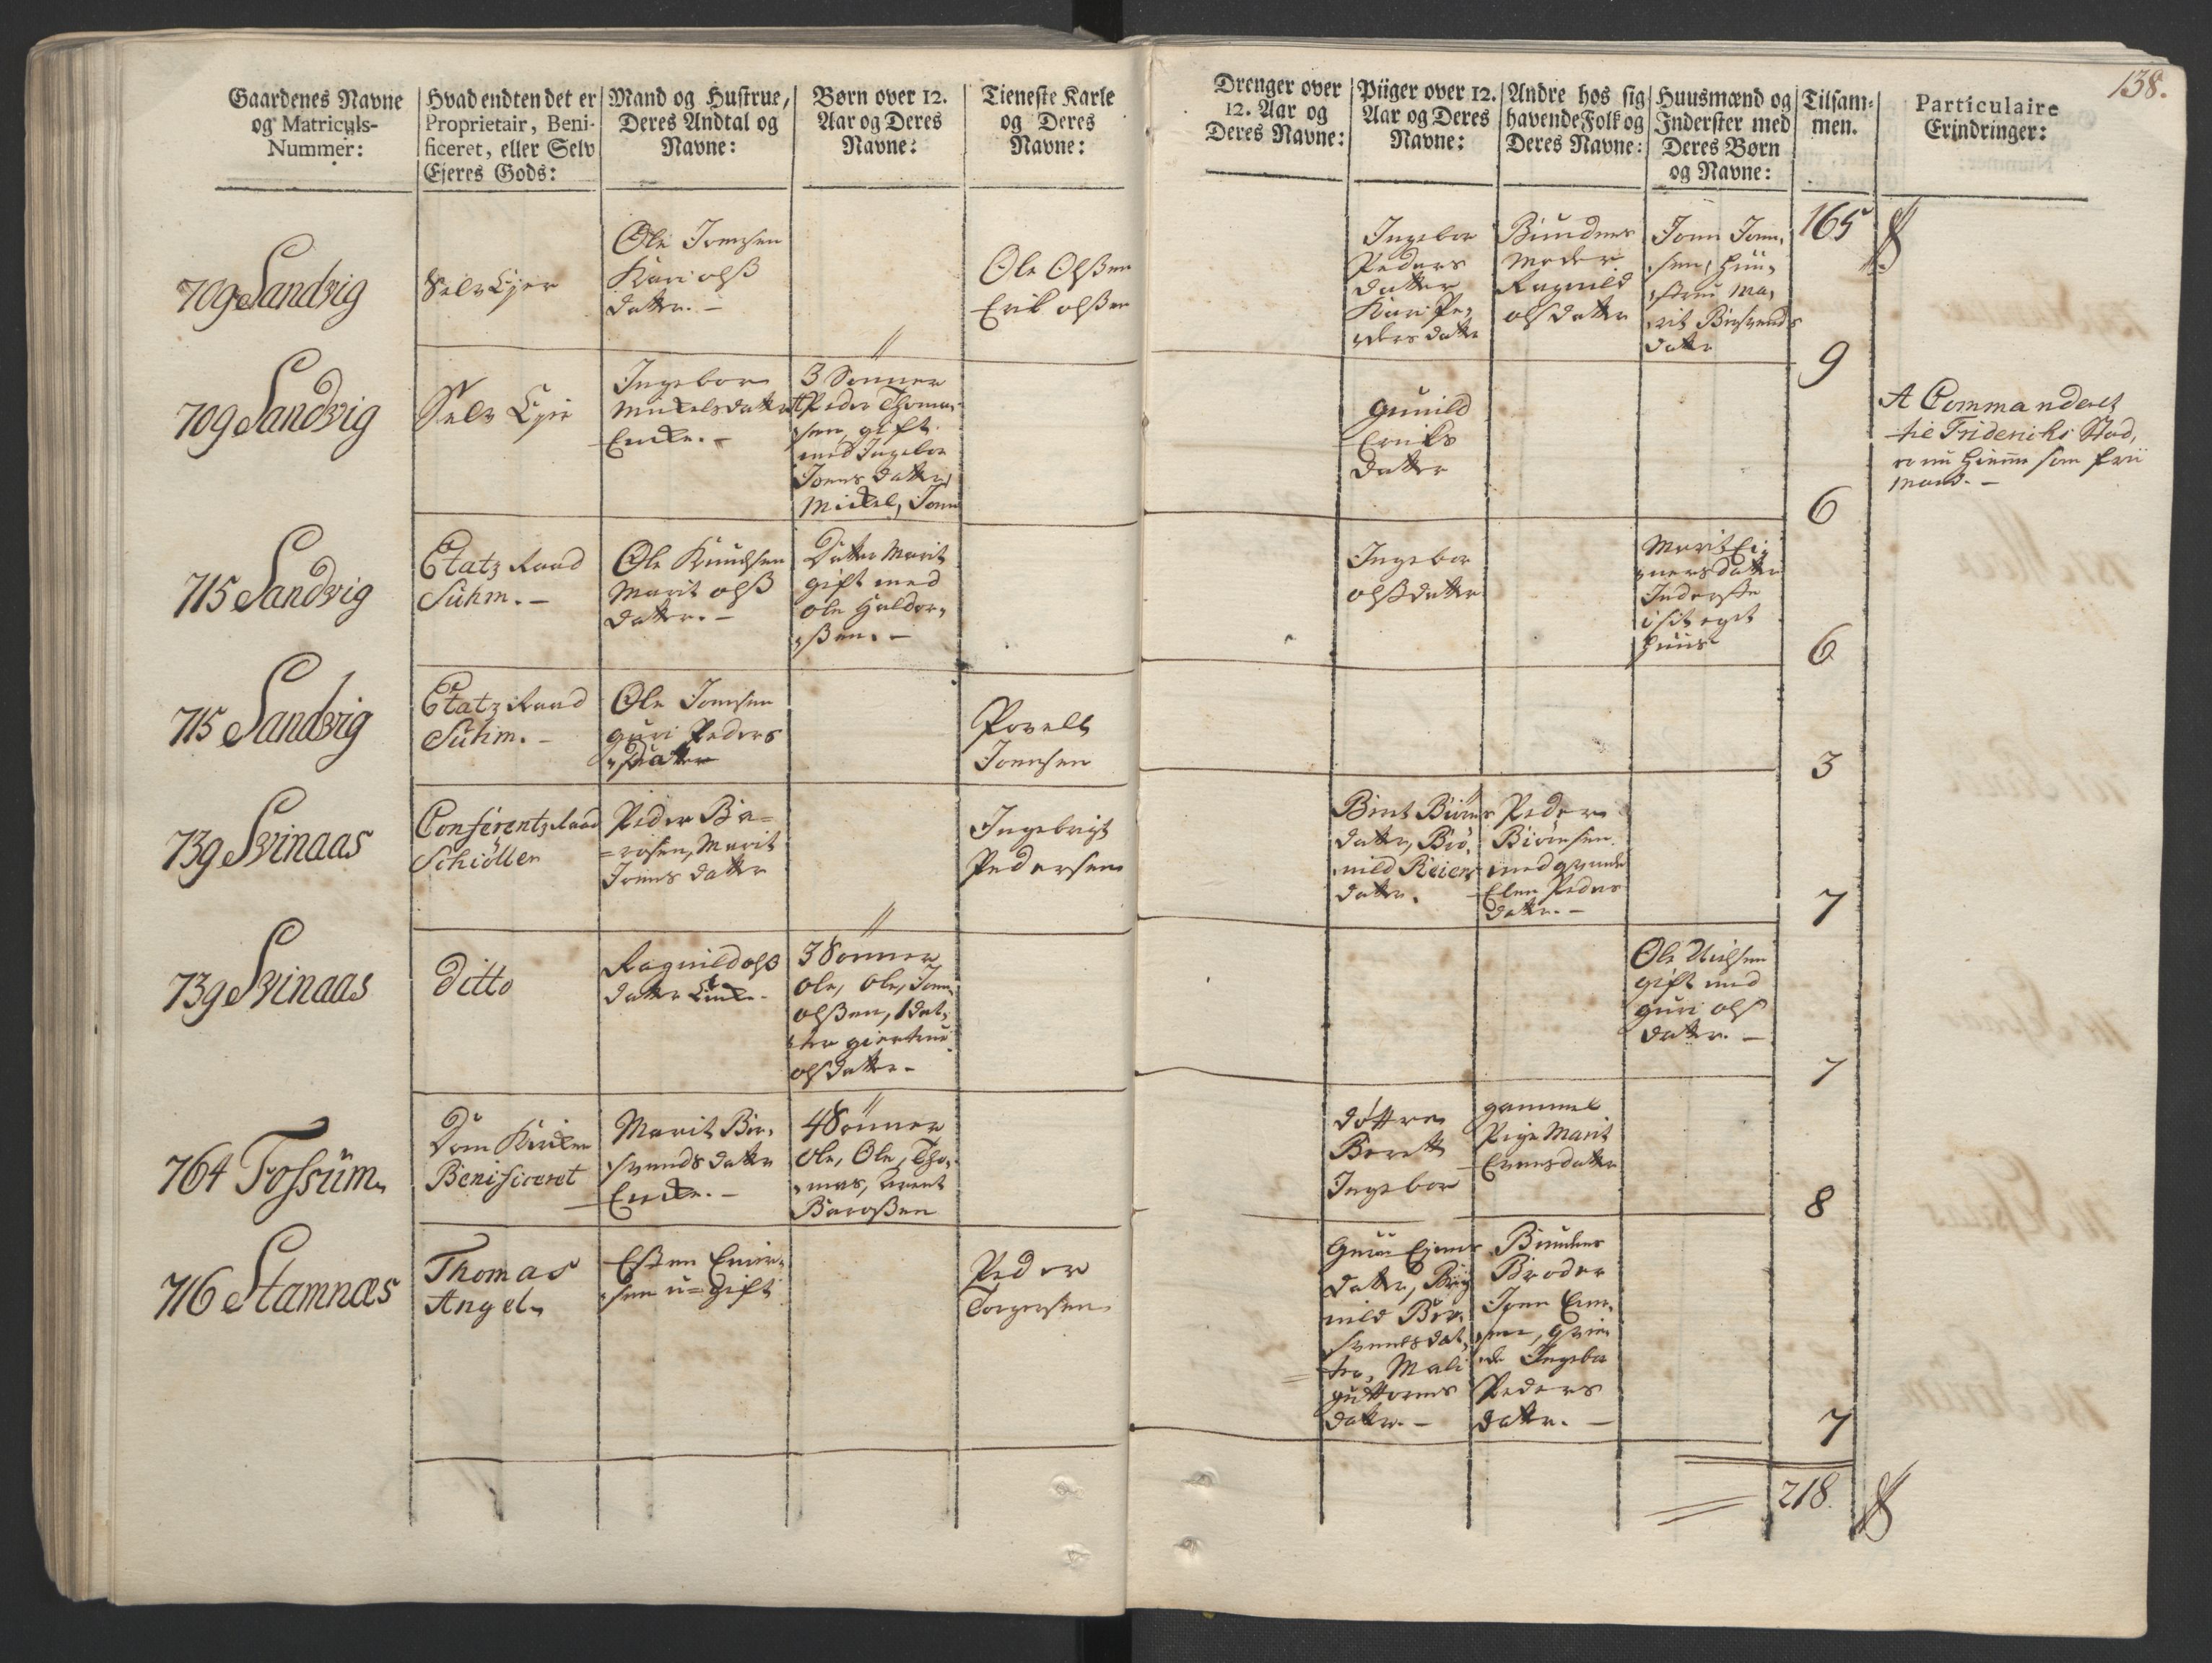 138.
Gaardenes Navne
og Matriculs-
Nummer:
Hvad endten det er
Proprietair, Beni-
ficeret, eller Selv
Ejeres Gods:
Mand og Hustrue,
Deres Andtal og
Navne:
Børn over 12.
Aar og Deres
Navne:
Tieneste Karle
og Deres
Navne:
Drenger over
12. Aar og
Deres Navne:
Piiger over 12.
Aar og Deres
Navne:
Andre hos sig
havende Folk og
Deres Navne:
Huusmænd og
Inderster med
Deres Børn
og Navne:
Tilsam-
men.
Particulaire
Erindringer:
165
709 Sandvig
Selv Ejer
Ole Joensen
Kari olß
datter. -
Ole Olßen
Erik olßen
Ingebor
Peders
datter
Kari Pe,
,ders datter
Bundens
Moder
Ragnild
olsdatter
Joen Joen,
,sen, Huu,
,strue Ma,
,rit Bersvends
datter
9
709 Sandvig
Selv Ejer
Ingebor
Mickelsdatter
Encke. -
3 Sønner
Peder Thoma-
sen, gift
med Ingebor
Joens datter,
Mickel, Joen
Gunild
Eriks
datter
6
A Commanderet
tie Friderichs Stad,
er nu hiemme som frii
mand. -
715 Sandvig
Etatz Raad
Suhm. -
Ole Knudsen
Marit olß
datter. -
Datter Marit
gift med
ole Haldor,
,ßen. -
Ingebor
olßdatter
Marit Ei,
,nersdatter
Inderste
i sit eget
Huus
6
715 Sandvig
Etatz Raad
Suhm. -
Ole Joensen
Guri Peders
datter
Povell
Joensen
3
739 Svinaas
Conferentz Raad
Schiøller
Peder Bie=
=rosen, Marit
Joens datter
Ingebrigt
Pedersen
Berit Biørns
datter, Brø,
,nild Reiers
datter.
Peder
Biørnsen
med qvinde
Elen Peders
datter. -
7
739 Svinaas
Ditto
Ragnild olß
datter Encke -
3 Sønner
ole, ole, Joen
olßen, 1 dat,
ter giertrue
olsdatter -
Ole Nielsen
gift med
guri ols
datter. -
7
764 Fossum
Dom Kircken
Benificeret
Marit Ber,
,svends datter
Encke. -
4 Sønner
Ole, Ole, Tho,
,mas, Arent
Baroßen
døttre
Berett
Ingebor
gammel
Pige Marit
Evensdatter
8
716 Stamnæs
Thomas
Angel
Esten Ener,
,sen u=gift
Peder
Torgersen
datter, Bry
nild Ber,
,svensdat,
ter, Mali
guttorms
datter. -
Bundens
Broder
Joen Ener,
,sen, qvin
de Ingebor
Peders
datter. -
7
218.